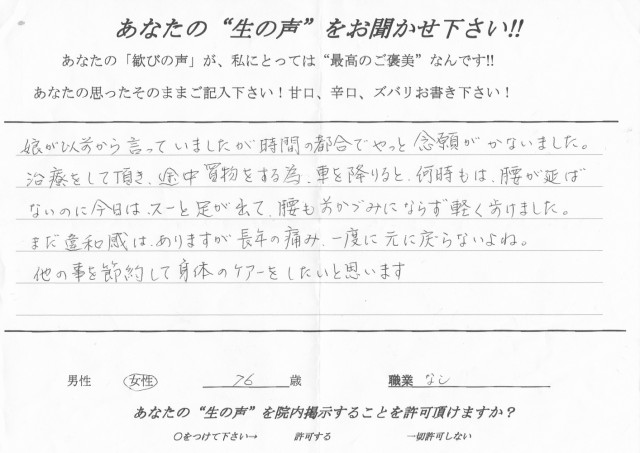 あなたの“生の声”をお聞かせ下さい!!
あなたの「歓びの声」が、私にとっては“最高のご褒美”なんです!!
あなたの思ったそのままご記入下さい！甘口、辛口、ズバリお書き下さい！
娘が以前から言っていましたが時間の都合でやっと念願がかないました。
治療をして頂き、途中買物をする為、車を降りると、何時もは、腰が延ば
ないのに今日は、スーと足が出て、腰も前かがみにならず軽く歩けました。
まだ違和感は、ありますが長年の痛み、一度に元に戻らないよね。
他の事を節約して身体のケアーをしたいと思います
男性 女性 76 歳 職業 なし
あなたの“生の声”を院内掲示することを許可頂けますか？
○をつけて下さい→ 許可する 一切許可しない